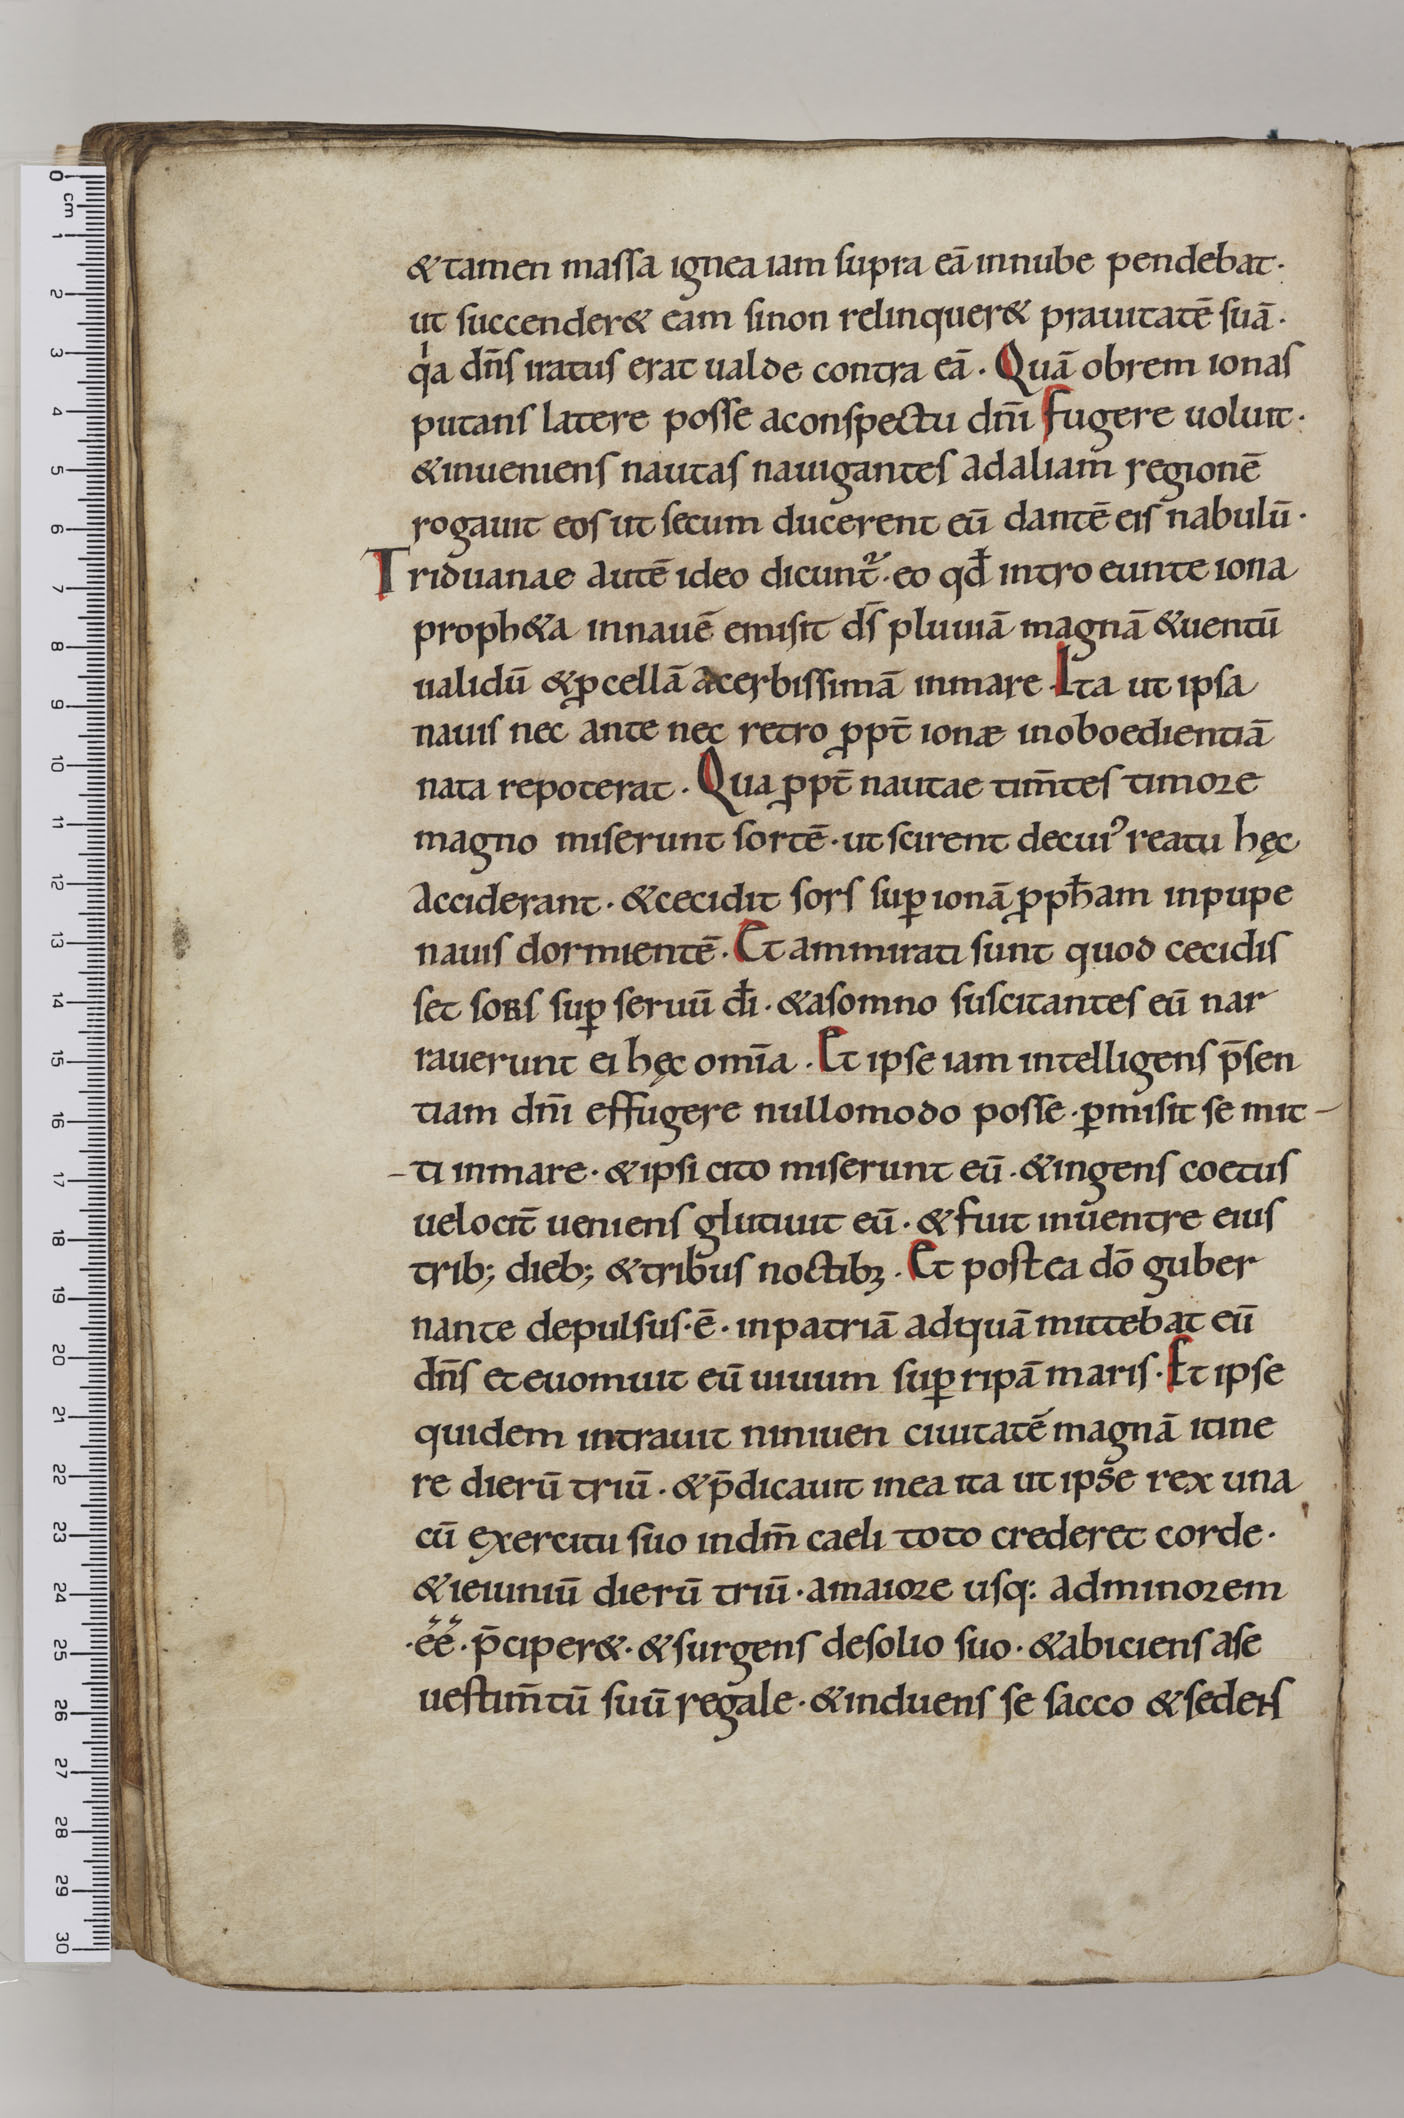 &tamen massa ignea iam supra eā innube pendebat·
ut succender& eam sinon relinquer& prauitatē suā·
qͥa dn̄s iratus erat ualde contra eā· Quā obrem ionas
putans latere posse aconspectu dn̄i fugere uoluit·
&inueniens nautas nauigantes adaliam regionē
rogauit eos ut secum ducerent eū dantē eis nabulū·
Triduanae autē ideo dicunt᷑· eo qđ intro eunte iona
proph&a innauē emisit ds̄ pluuiā magnā &uentū
ualidū &ꝓcellā acerbissimā inmare· Ita ut ipsa
nauis nec ante nec retro ꝓpt̄ ionæ inoboedientiā
nata repoterat· Qua ꝓpt̄ nautae tim̄tes timore
magno miserunt sortē· ut scirent decuiꝰ reatu hęc
acciderant· &cecidit sors suꝑ ionā ꝓpħam inpupe
nauis dormientē· Et ammirati sunt quod cecidis
set sors suꝑ seruū dī· &asomno suscitantes eū nar
rauerunt ei hęc om̄ia· Et ipse iam intelligens p̄sen
tiam dn̄i effugere nullomodo posse· ꝑmisit se mit-
-ti inmare· &ipsi cito miserunt eū· &ingens coetus
uelocit̄ ueniens glutiuit eū· &fuit inuentre eius
trib; dieb; &tribus noctibꝫ· Et postea dō guber
nante depulsus·ē· inpatriā adquā mittebat eū
dn̄s et euomuit eū uiuum suꝑ ripā maris· Et ipse
quidem intrauit niniuen ciuitatē magnā itine
re dierū triū· &p̄dicauit inea ita ut ipse rex una
cū exercitu suo indm̄ caeli toto crederet corde·
&ieiuniū dierū triū· amaiore usq: adminorem
·ēē· p̄ciper&· &surgens desolio suo· &abiciens ase
uestim̄tū suū regale· &induens se sacco &sedens
0 cm 1 2 3 4 5 6 7 8 9 10 11 12 13 14 15 16 17 18 19 20 21 22 23 24 25 26 27 28 29 30